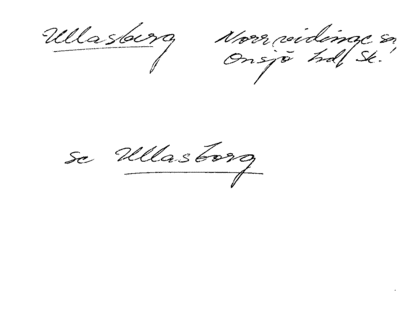 Ullasberg Norrvidinge sn
Onsjö hd, Sk.
se Ullasborg